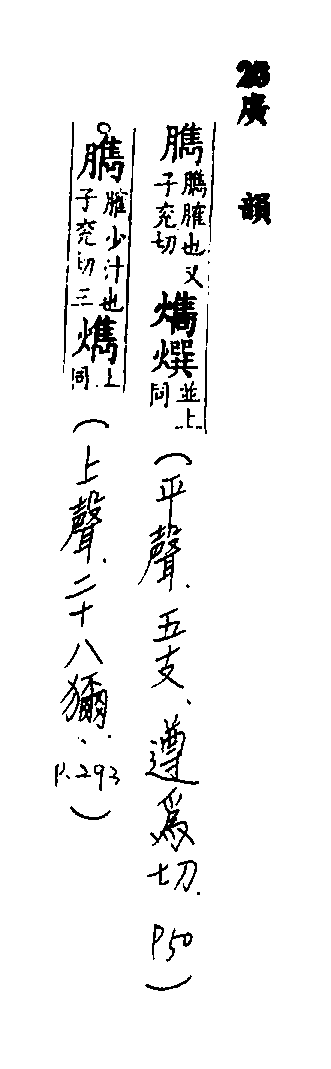 廣韻
臇 臇臛也又子兗切 㷷 並上同 (平聲.五支、遵爲切. P50)
臇 臛少汁也子兗切三 上同 (上聲.二十八獮. P.293)